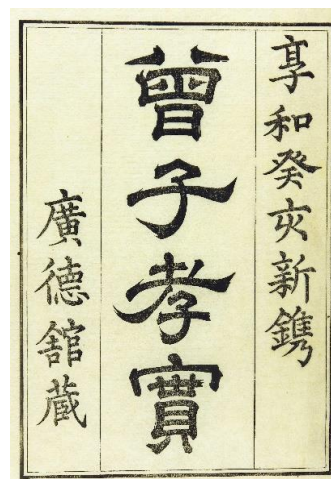 享和癸亥新鐫
曾子孝實
廣德館蔵